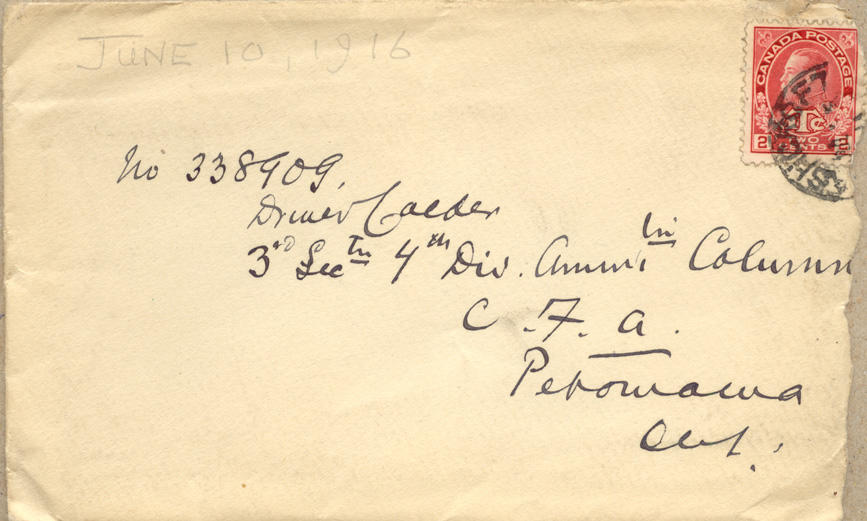 JUNE 10, 1916
CANADA POSTAGE
1Tc
2 TWO CENTS 2
No 338909,
Driver Calder
3rd Sectn 4th Div. Ammtn Column
C.F.A.
Petowawa
Ont.